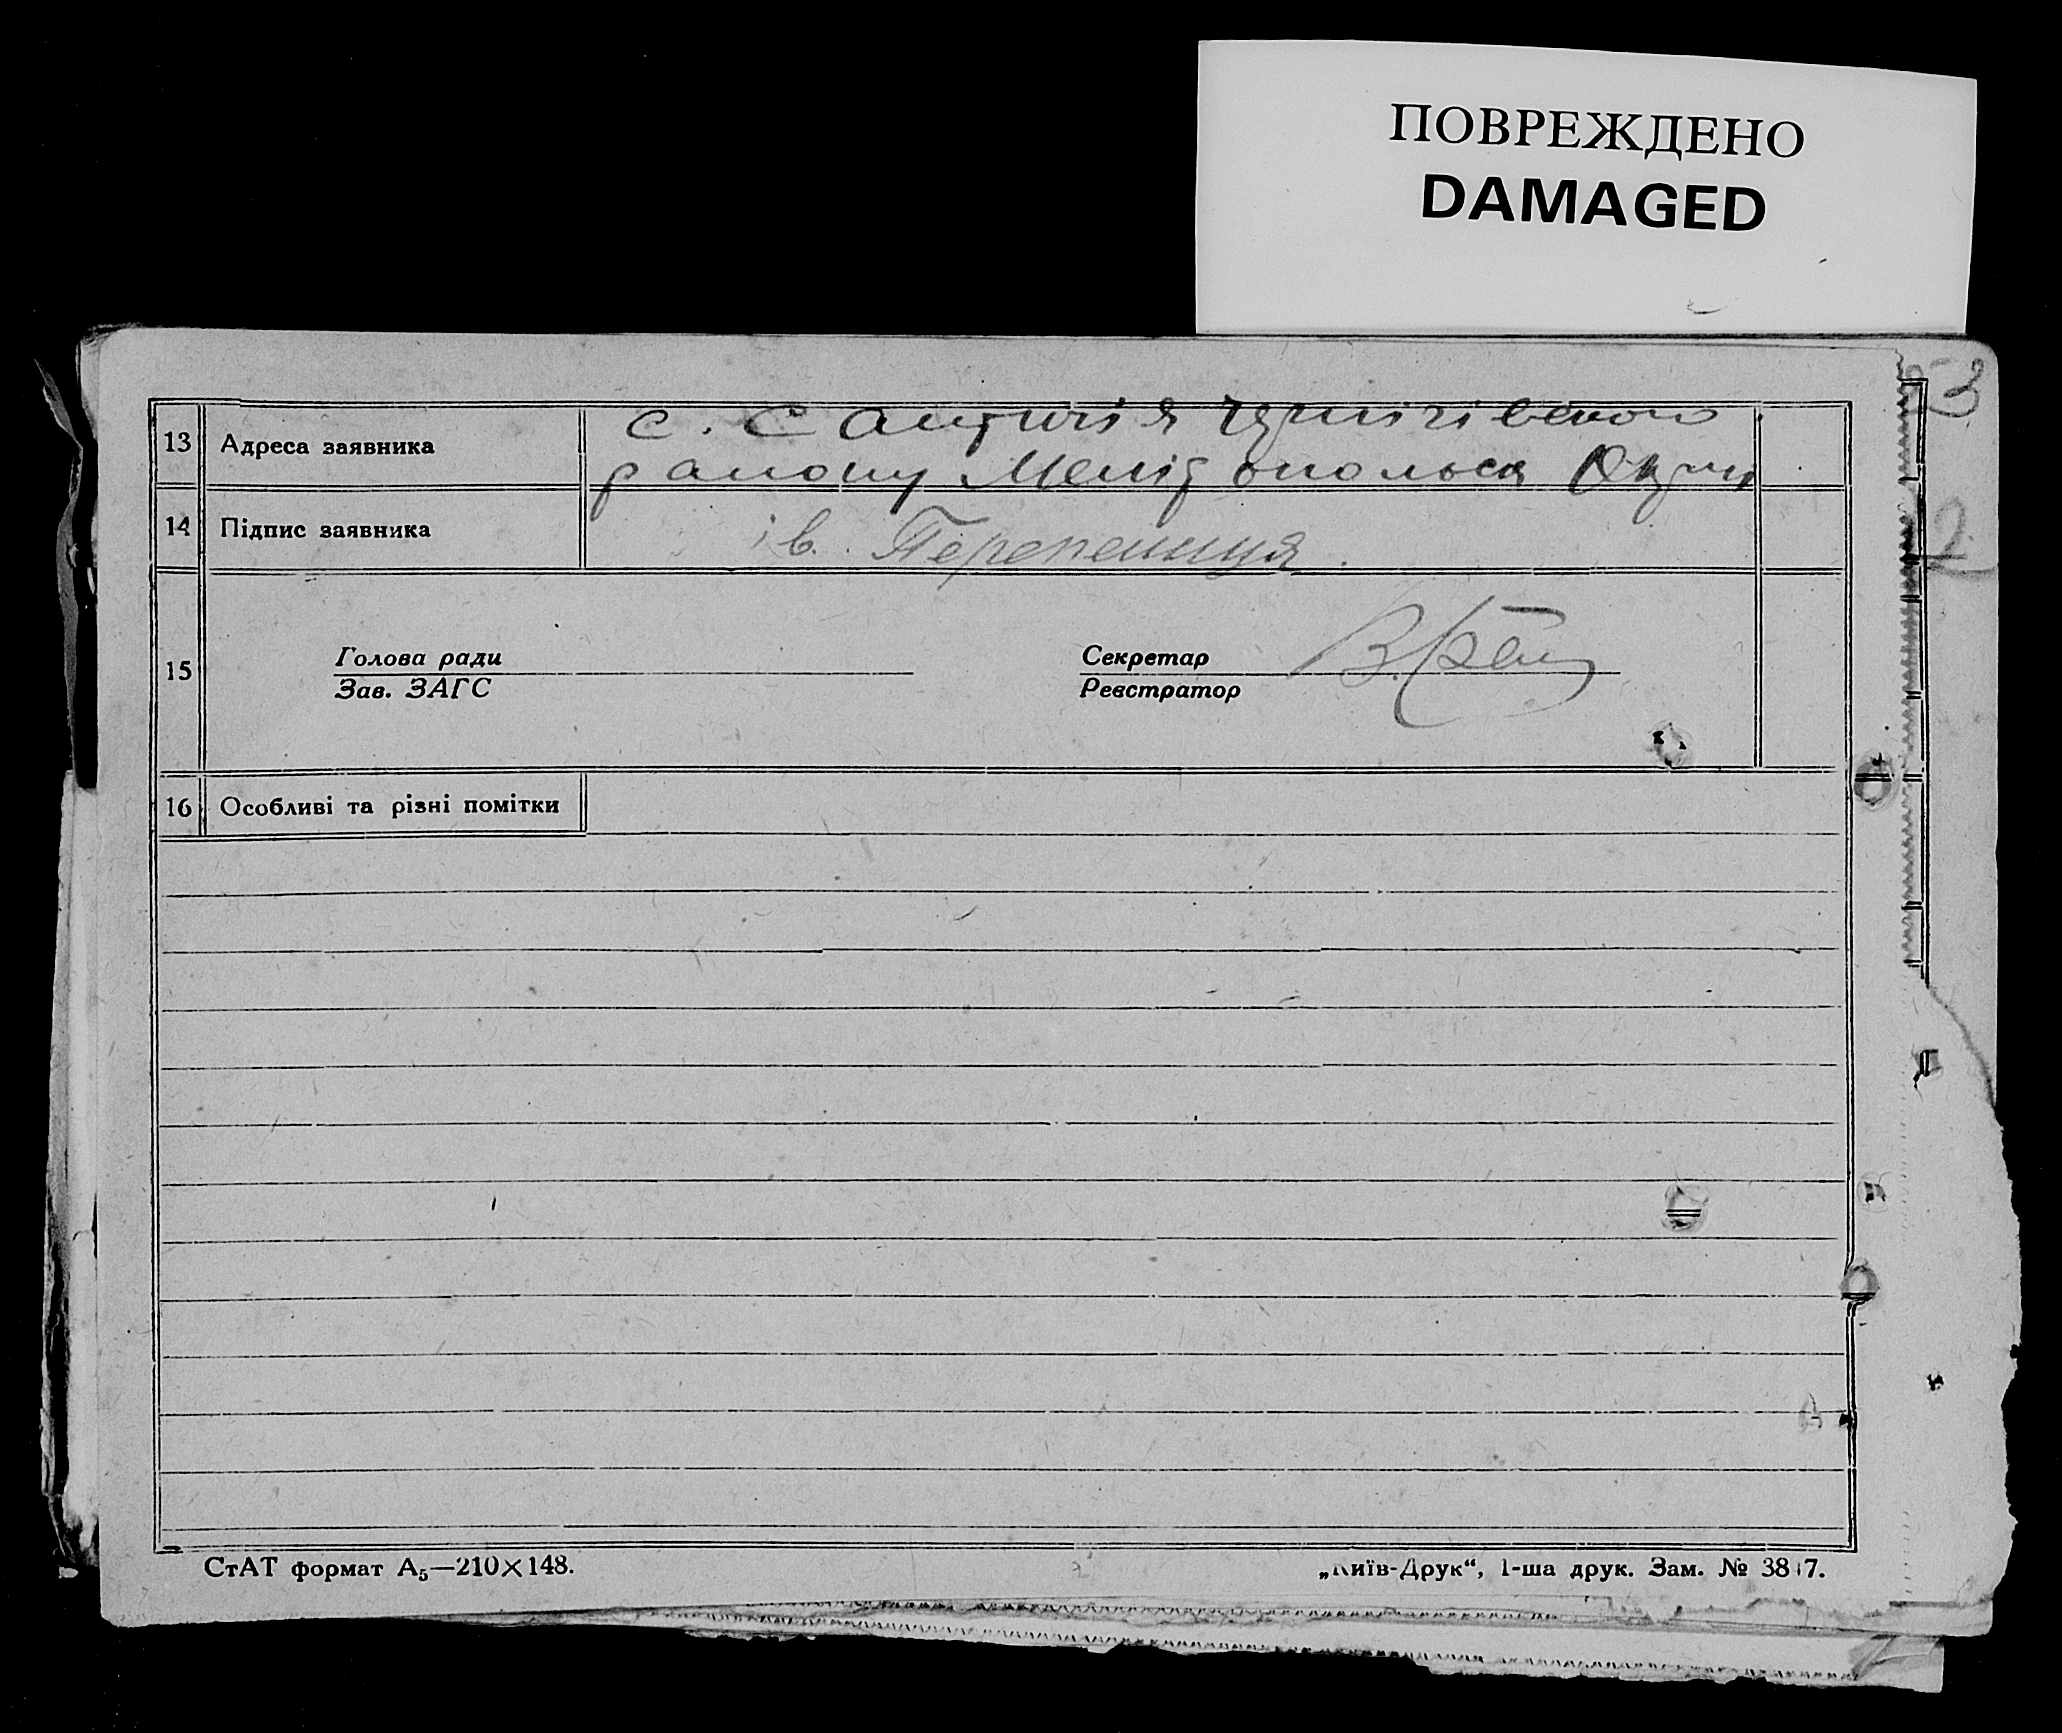 ПОВРЕЖДЕНО
DAMAGED
13 Адреса заявника
с.
району Мелітопольск Округ
14 Підпис заявника ів. Перепелиця.
15 Голова ради
Зав. ЗАГС
Секретар
Реєстратор
16 Особливі та різні помітки
СтАТ формат А₅—210×148.
„Київ-Друк“, 1-ша друк. Зам. №